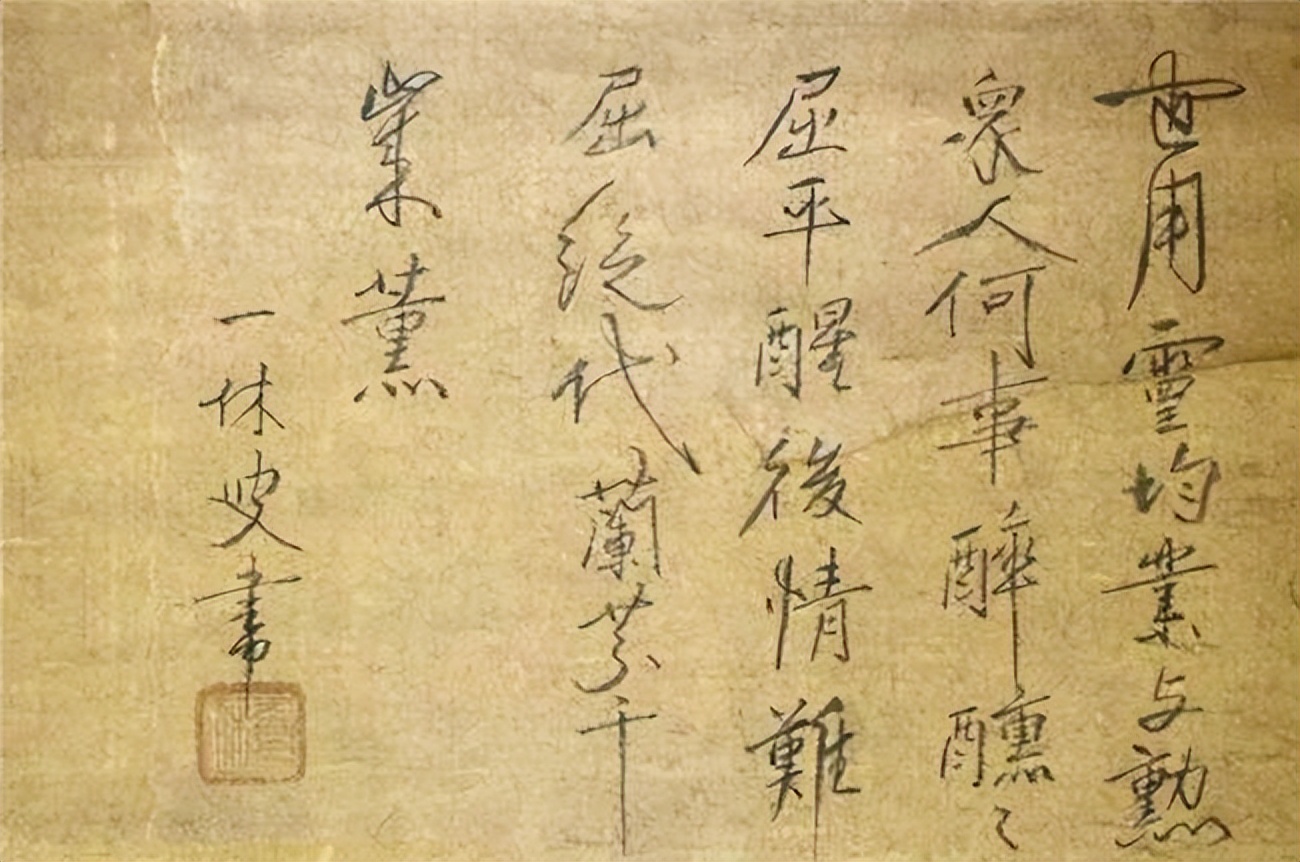 世用霊均業与勲
衆人何事醉醺々
屈平醒後情難
屈絶代蘭芬千
歳薫
一休叟書